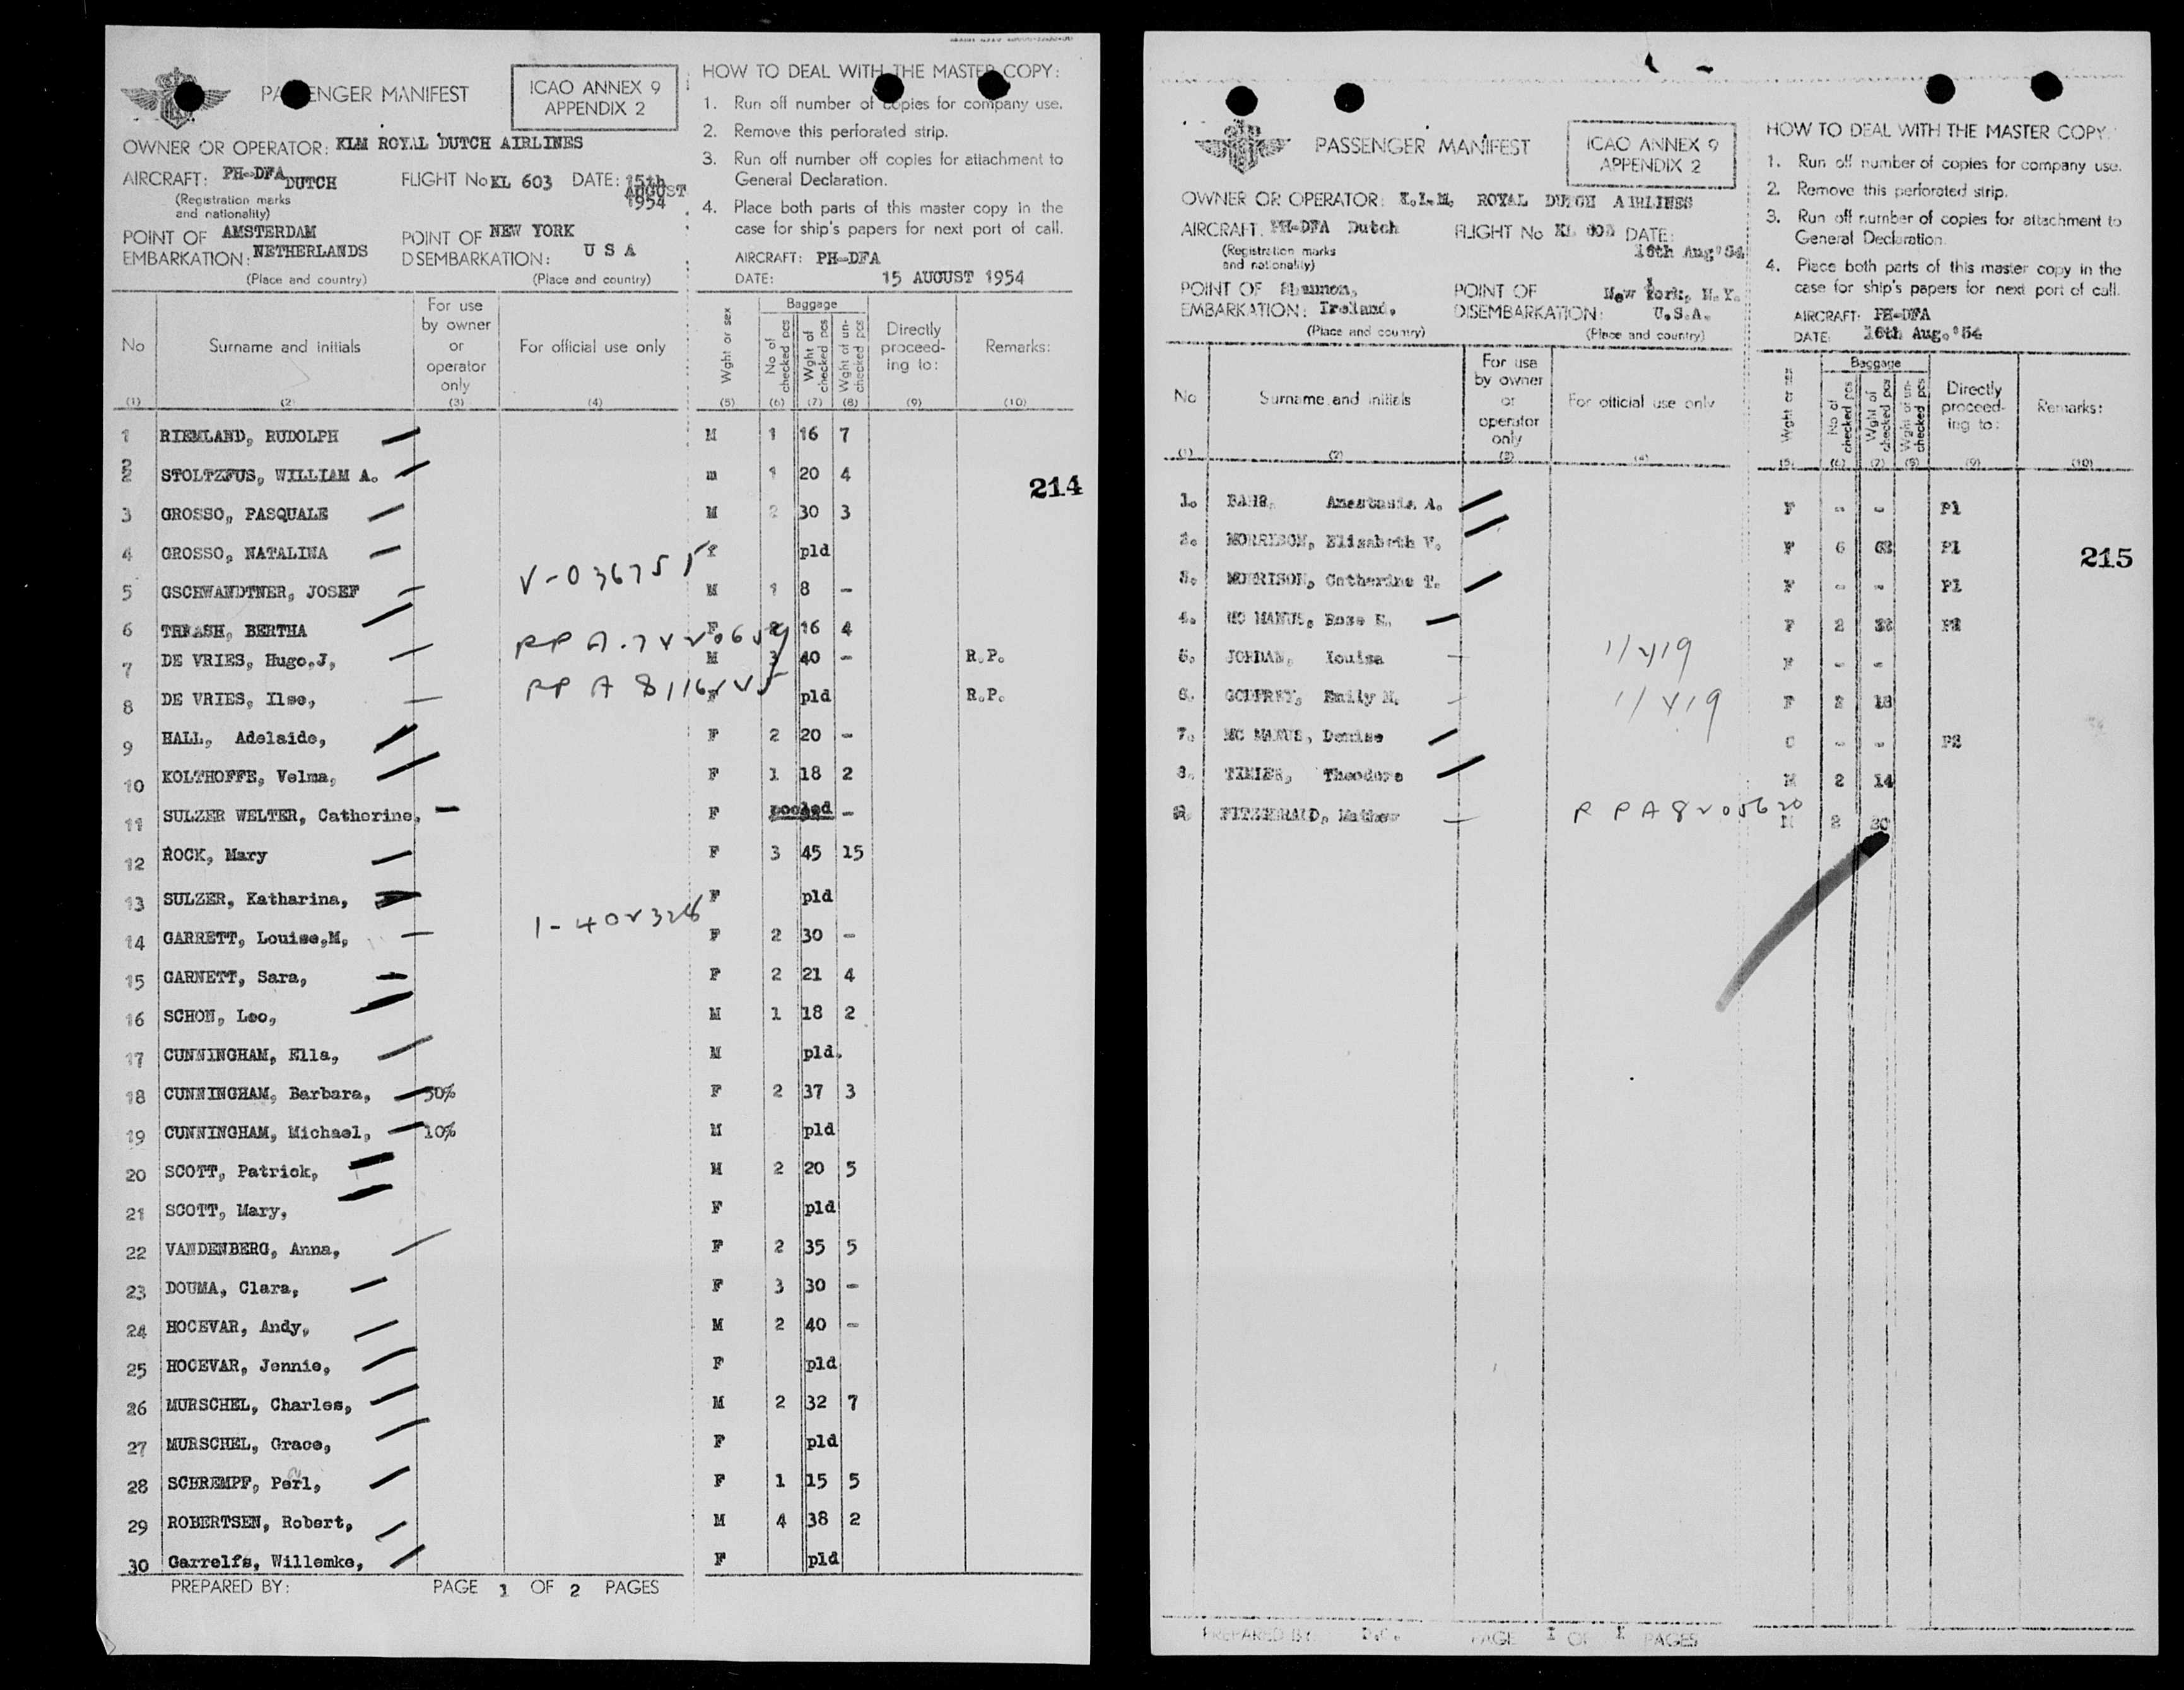 PASSENGER MANIFEST
ICAO ANNEX 9
APPENDIX 2
OWNER OR OPERATOR: KLM ROYAL DUTCH AIRLINES
AIRCRAFT: PH-DFA DUTCH FLIGHT No KL 603 DATE: 15th AUGUST 1954
(Registration marks
and nationality)
POINT OF EMBARKATION: AMSTERDAM NETHERLANDS POINT OF DISEMBARKATION: NEW YORK U S A
(Place and country) (Place and country)
HOW TO DEAL WITH THE MASTER COPY:
1. Run off number of copies for company use.
2. Remove this perforated strip.
3. Run off number off copies for attachment to
General Declaration.
4. Place both parts of this master copy in the
case for ship's papers for next port of call.
AIRCRAFT: PH-DFA
DATE: 15 AUGUST 1954
No Surname and initials For use by owner or operator only For official use only Wght or sex Baggage No of checked pcs Wght of checked pcs Wght of un-checked pcs Directly proceed-ing to: Remarks:
(1) (2) (3) (4) (5) (6) (7) (8) (9) (10)
1 RIEMLAND, RUDOLPH M 1 16 7
2 STOLTZFUS, WILLIAM A. m 1 20 4
214
3 GROSSO, PASQUALE M 2 30 3
4 GROSSO, NATALINA f pld
5 GSCHWANDTNER, JOSEF M 1 8 -
6 TREASH, BERTHA F 2 16 4
7 DE VRIES, Hugo,J, M 3 40 - R.P.
8 DE VRIES, Ilse, F pld R.P.
9 HALL, Adelaide, F 2 20 -
10 KOLTHOFFE, Velma, F 1 18 2
11 SULZER WELTER, Catherine, F pooled -
12 ROCK, Mary F 3 45 15
13 SULZER, Katharina, F pld
14 GARRETT, Louise,M, F 2 30 -
15 GARNETT, Sara, F 2 21 4
16 SCHON, Leo, M 1 18 2
17 CUNNINGHAM, Ella, M pld.
18 CUNNINGHAM, Barbara, 50% F 2 37 3
19 CUNNINGHAM, Michael, 10% M pld
20 SCOTT, Patrick, M 2 20 5
21 SCOTT, Mary, F pld
22 VANDENBERG, Anna, F 2 35 5
23 DOUMA, Clara, F 3 30 -
24 HOCEVAR, Andy, M 2 40 -
25 HOCEVAR, Jennie, F pld
26 MURSCHEL, Charles, M 2 32 7
27 MURSCHEL, Grace, F pld
28 SCHREMPF, Perl, F 1 15 5
29 ROBERTSEN, Robert, M 4 38 2
30 Garrelfs, Willemke, F pld
PREPARED BY: PAGE 1 OF 2 PAGES
PASSENGER MANIFEST
ICAO ANNEX 9
APPENDIX 2
OWNER OR OPERATOR: K.L.M. ROYAL DUTCH AIRLINES
AIRCRAFT. PH-DFA Dutch FLIGHT No KL 603 DATE: 16th Aug'54
(Registration marks
and nationality)
POINT OF EMBARKATION: Shannon, Ireland. POINT OF DISEMBARKATION: New York, N.Y. U.S.A.
(Place and country) (Place and country)
HOW TO DEAL WITH THE MASTER COPY:
1. Run off number of copies for company use.
2. Remove this perforated strip.
3. Run off number of copies for attachment to
General Declaration.
4. Place both parts of this master copy in the
case for ship's papers for next port of call.
AIRCRAFT: PH-DFA
DATE: 16th Aug.'54
No Surname and initials For use by owner or operator only For official use only Wght or sex Baggage No of checked pcs Wght of checked pcs Wght of un-checked pcs Directly proceed-ing to: Remarks:
(1) (2) (3) (4) (5) (6) (7) (8) (9) (10)
1. Anastasia A. F - - P1
2. MORRISON, Elizabeth V. F 6 P1
215
3. MORRISON, Catherine T. F - - P1
4. MC MANUS, Rose E. F 2 P2
5. JORDAN, Louisa 11419 F - -
6. GODFREY, Emily M. 11419 F 2 18
7. MC MANUS, Denise C - - P2
8. Theodore M 2 14
9. FITZGERALD, Mathew M 2 20
PREPARED BY: PAGE 1 OF 1 PAGES